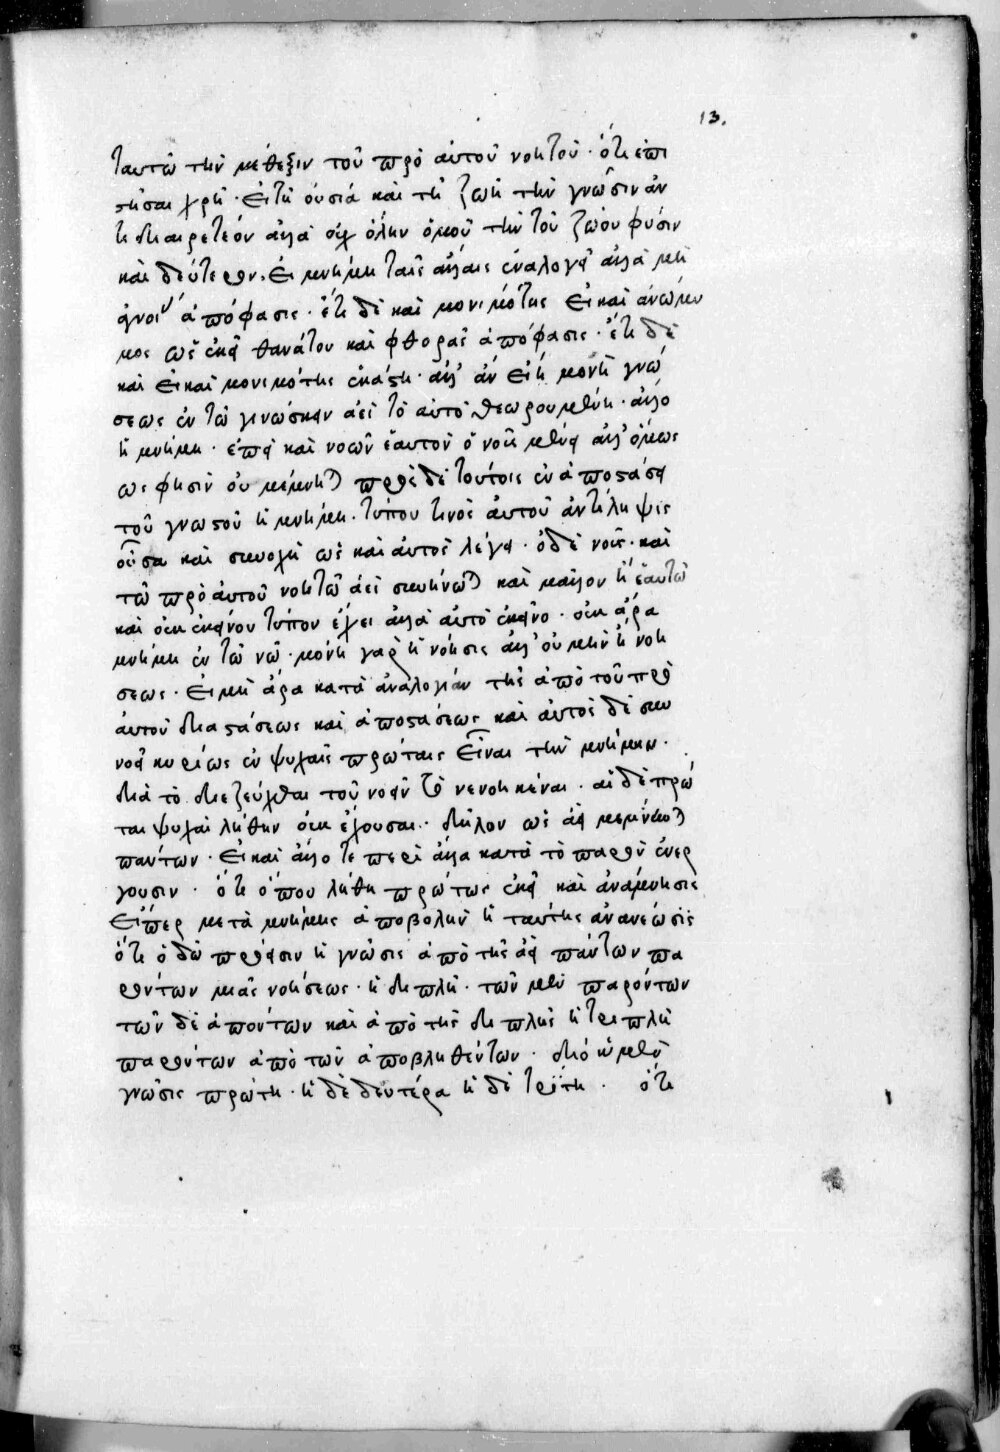 13.
ταυτῶ τὴν μέθεξιν τοῦ πρὸ αὐτοῦ νοητοῦ · ὅτι ἐπι
στῆσαι χρὴ · εἰ τῆ οὐσία καὶ τῆ ζωῆ τὴν γνῶσιν ἀν
τιδιαιρετέον ἀλλὰ οὐχ ὅλην ὁμοῦ τὴν τοῦ ζώου φύσιν
καὶ δεύτερον · εἰ μνήμη ταῖς ἄλλαις ἀναλογεῖ ἀλλὰ μὴ
ἀπόφασις · ἔτι δὲ καὶ μονιμότης εἰ καὶ ἀνώνυ
μος ὡς ἐκεῖ θανάτου καὶ φθορᾶς ἀπόφασις · ἔτι δὲ
καὶ εἰ καὶ μονιμότης ἑκάστη · ἀλλ' ἂν εἴη μονὴ γνώ
σεως ἐν τῶ γινώσκειν ἀεὶ τὸ αὐτὸ θεωρουμένη · ἄλλο
ἡ μνήμη · ἐπεὶ καὶ νοῶν ἑαυτὸν ὁ νοῦς μένει ἀλλ' ὅμως
ὥς φησιν οὐ μέμνηται πρὸς δὲ τούτοις ἐν ἀποστάσει
τοῦ γνωστοῦ ἡ μνήμη · τύπου τινὸς αὐτοῦ ἀντίληψις
οὖσα καὶ συνοχὴ ὡς καὶ αὐτὸς λέγει · ὁ δὲ νοῦς · καὶ
τῶ πρὸ αὐτοῦ νοητῶ ἀεὶ συνήνωται καὶ μᾶλλον ἢ ἑαυτῶ
καὶ οὐκ ἐκείνου τύπον ἔχει ἀλλὰ αὐτὸ ἐκεῖνο · οὐκ ἄρα
μνήμη ἐν τῶ νῶ · μονὴ γὰρ ἡ νόησις ἀλλ' οὐ μὴν ἡ νοή
σεως · εἰ μὴ ἄρα κατὰ ἀναλογίαν τῆς ἀπὸ τοῦ πρὸ
αὐτοῦ διαστάσεως καὶ ἀποστάσεως καὶ αὐτὸς δὲ συν
νοεῖ κυρίως ἐν ψυχαῖς πρώταις εἶναι τὴν μνήμην ·
διὰ τὸ διεζεύχθαι τοῦ νοεῖν τὸ νενοηκέναι · αἱ δὲ πρῶ
ται ψυχαὶ λήθην οὐκ ἔχουσαι · δῆλον ὡς ἀεὶ μέμνηνται
πάντων · εἰ καὶ ἄλλοτε περὶ ἄλλα κατὰ τὸ παρὸν ἐνερ
γοῦσιν · ὅτι ὅπου λήθη πρώτως ἐκεῖ καὶ ἀνάμνησις
εἴπερ μετὰ μνήμης ἀποβολὴν ἡ ταύτης ἀνανέωσις
ὅτι ὁδῶ πρόεισιν ἡ γνῶσις ἀπὸ τῆς ἀεὶ πάντων πα
ρόντων μιᾶς νοήσεως · ἡ διπλῆ · τῶν μὲν παρόντων
τῶν δὲ ἀπόντων καὶ ἀπὸ τῆς διπλῆς ἡ τριπλῆ
παρόντων ἀπόντων ἀποβληθέντων · διὸ ἡ μὲν
γνῶσις πρώτη · ἡ δὲ δευτέρα ἡ δὲ τρίτη · ὅτι